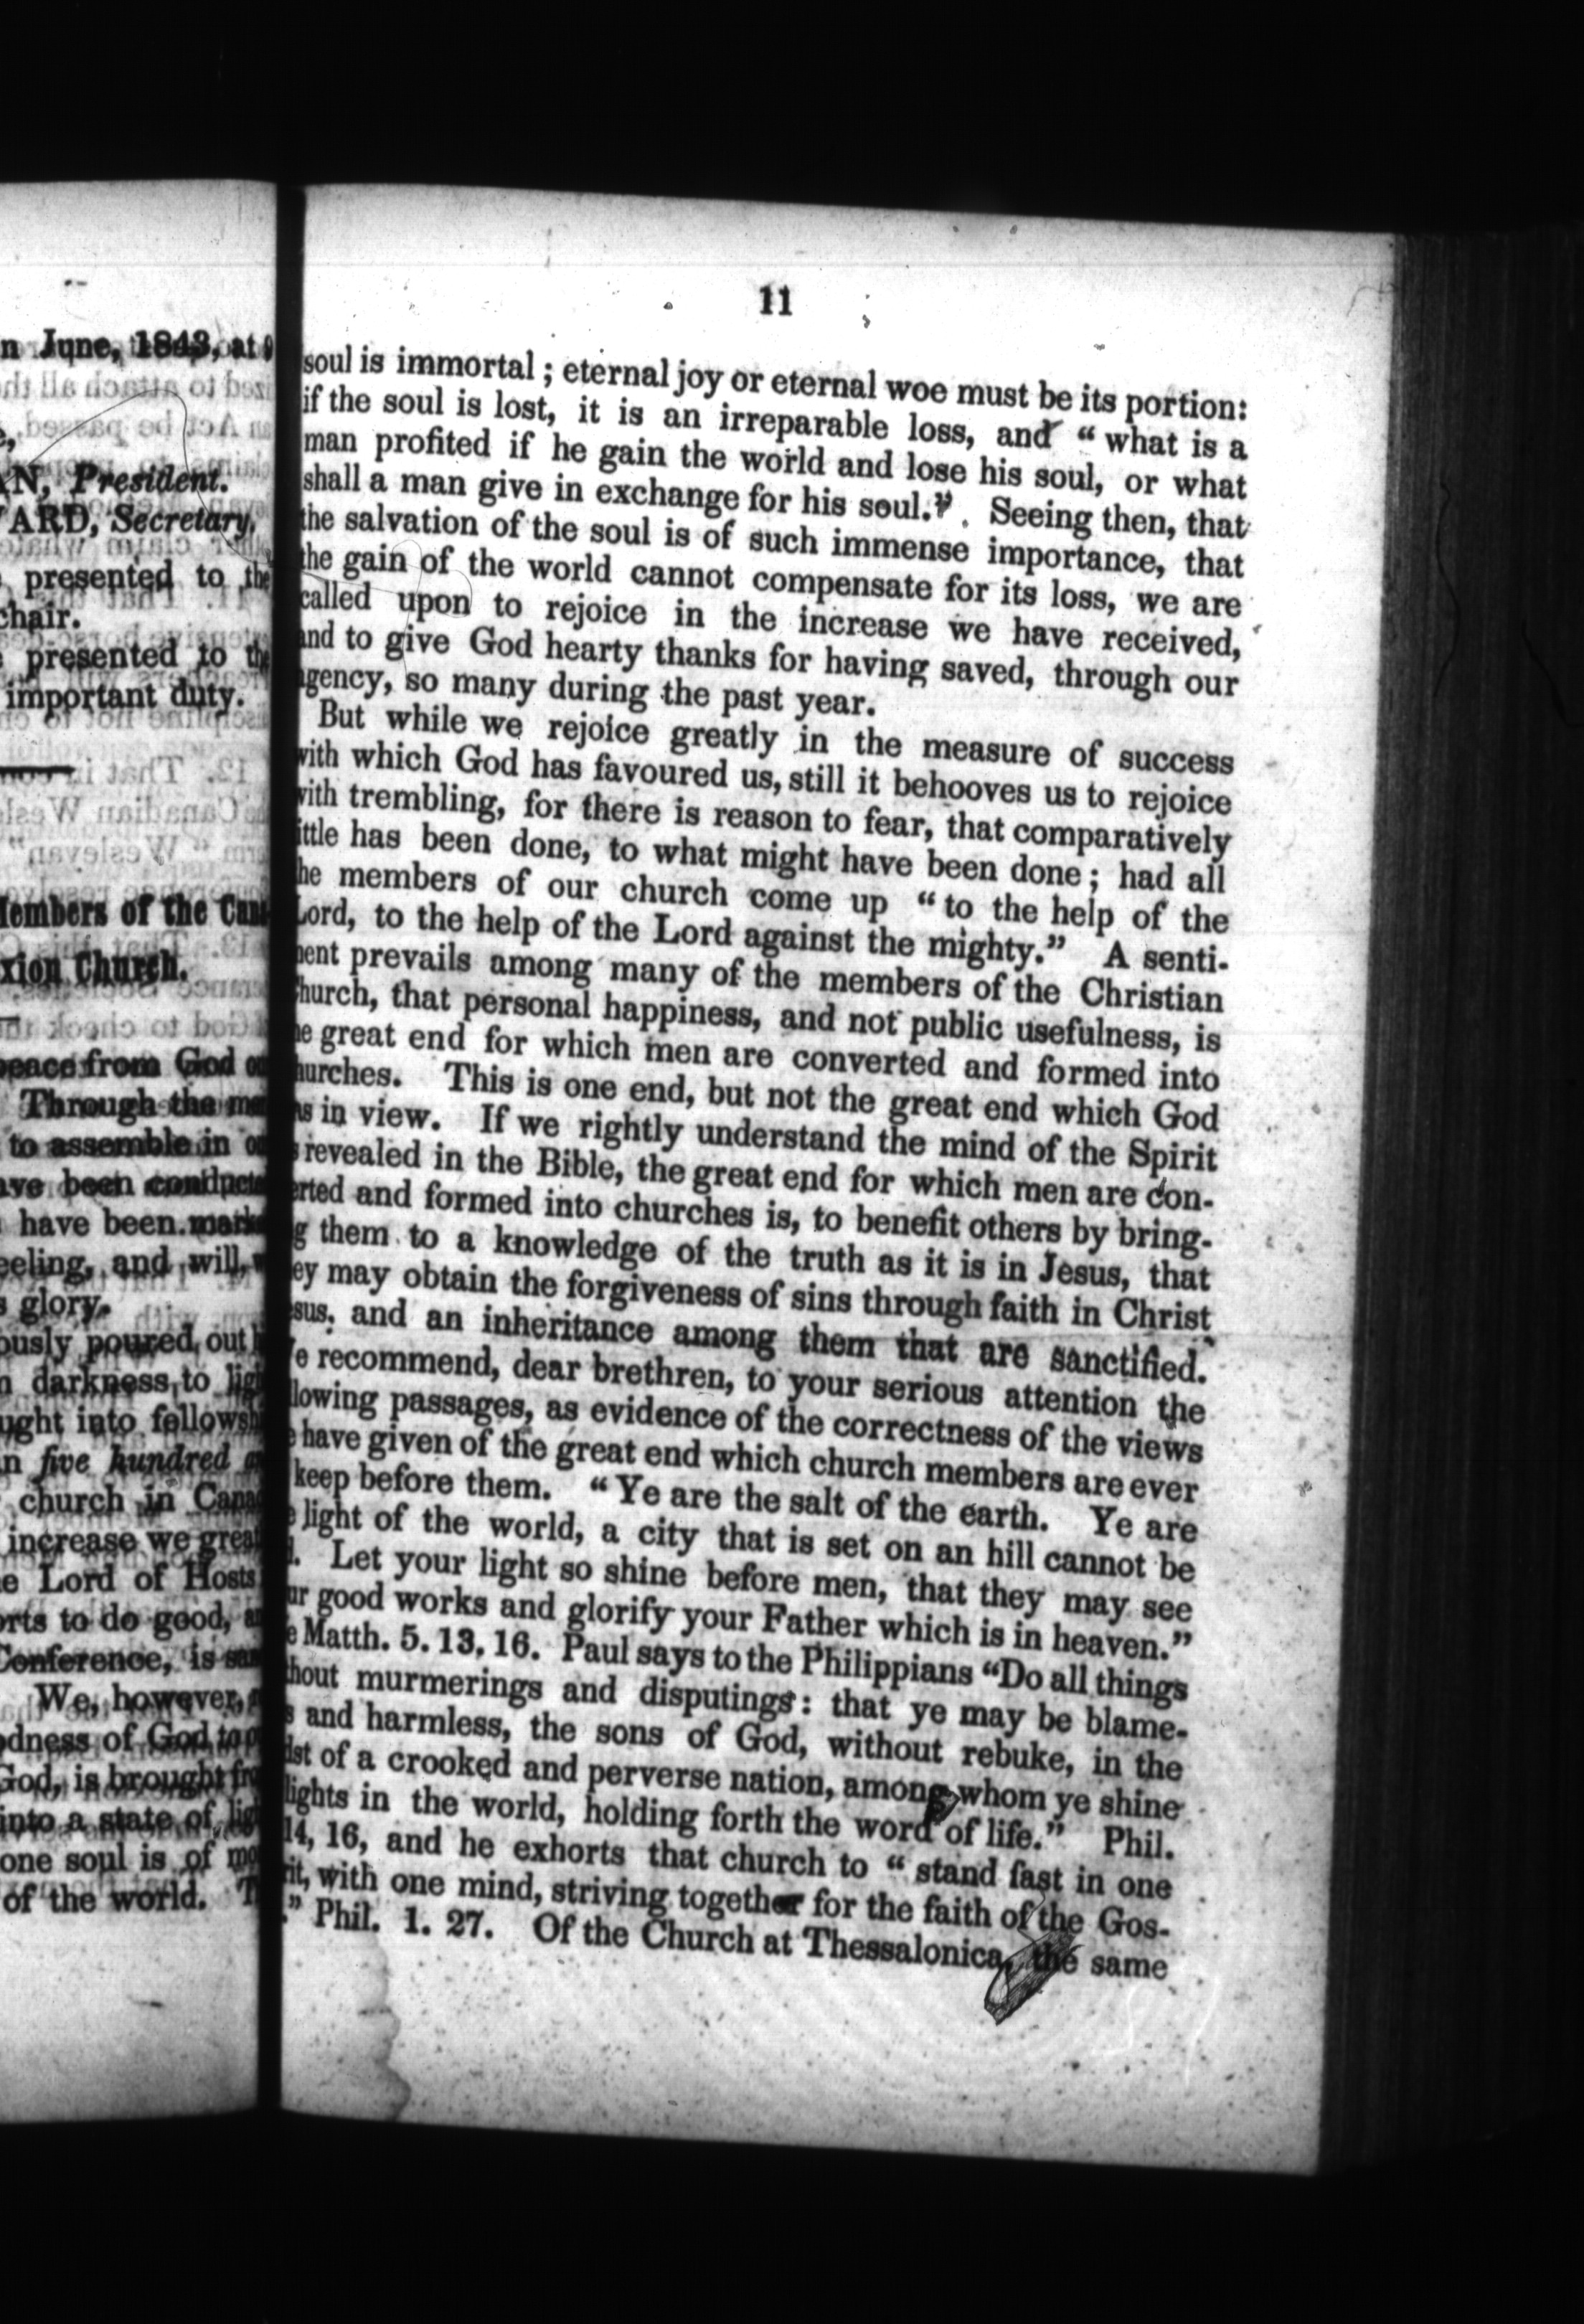 n June, 1843, at 9
AN, President.
ARD, Secretary.
presented to the
chair.
presented to the
important duty.
Members of the
xion Church.
peace from God
Through the
to assemble in
ave been
have been
eeling, and will
s glory.
ously poured out
darkness to
ught into
n five hundred
church in
increase we
e Lord of Hosts
orts to do good,
Conference, is
We, however,
odness of God to
God, is brought
into a state of
one soul is of
of the world.
11
soul is immortal ; eternal joy or eternal woe must be its portion:
if the soul is lost, it is an irreparable loss, and “ what is a
man profited if he gain the world and lose his soul, or what
shall a man give in exchange for his soul.” Seeing then, that
the salvation of the soul is of such immense importance, that
the gain of the world cannot compensate for its loss, we are
called upon to rejoice in the increase we have received,
and to give God hearty thanks for having saved, through our
agency, so many during the past year.
But while we rejoice greatly in the measure of success
with which God has favoured us, still it behooves us to rejoice
with trembling, for there is reason to fear, that comparatively
ittle has been done, to what might have been done ; had all
he members of our church come up “ to the help of the
Lord, to the help of the Lord against the mighty.” A senti-
ment prevails among many of the members of the Christian
hurch, that personal happiness, and not public usefulness, is
he great end for which men are converted and formed into
hurches. This is one end, but not the great end which God
as in view. If we rightly understand the mind of the Spirit
s revealed in the Bible, the great end for which men are con-
erted and formed into churches is, to benefit others by bring-
g them to a knowledge of the truth as it is in Jesus, that
ey may obtain the forgiveness of sins through faith in Christ
esus, and an inheritance among them that are sanctified.
e recommend, dear brethren, to your serious attention the
llowing passages, as evidence of the correctness of the views
e have given of the great end which church members are ever
keep before them. “ Ye are the salt of the earth. Ye are
e light of the world, a city that is set on an hill cannot be
d. Let your light so shine before men, that they may see
ur good works and glorify your Father which is in heaven.”
e Matth. 5. 13, 16. Paul says to the Philippians “Do all things
thout murmerings and disputings : that ye may be blame-
s and harmless, the sons of God, without rebuke, in the
dst of a crooked and perverse nation, among whom ye shine
lights in the world, holding forth the word of life.” Phil.
14, 16, and he exhorts that church to “ stand fast in one
rit, with one mind, striving together for the faith of the Gos-
.” Phil. 1. 27. Of the Church at Thessalonica, the same